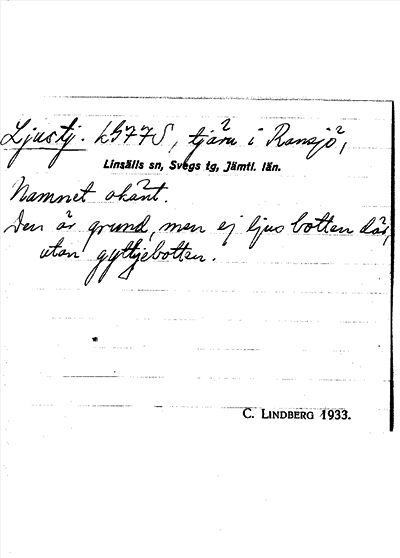 Ljustj. k5775, tjärn i Ransjö,
Linsälls sn, Svegs tg, Jämtl. län.
Namnet okänt.
Den är grund, men ej ljus botten där,
utan gyttjebotten.
C. LINDBERG 1933.